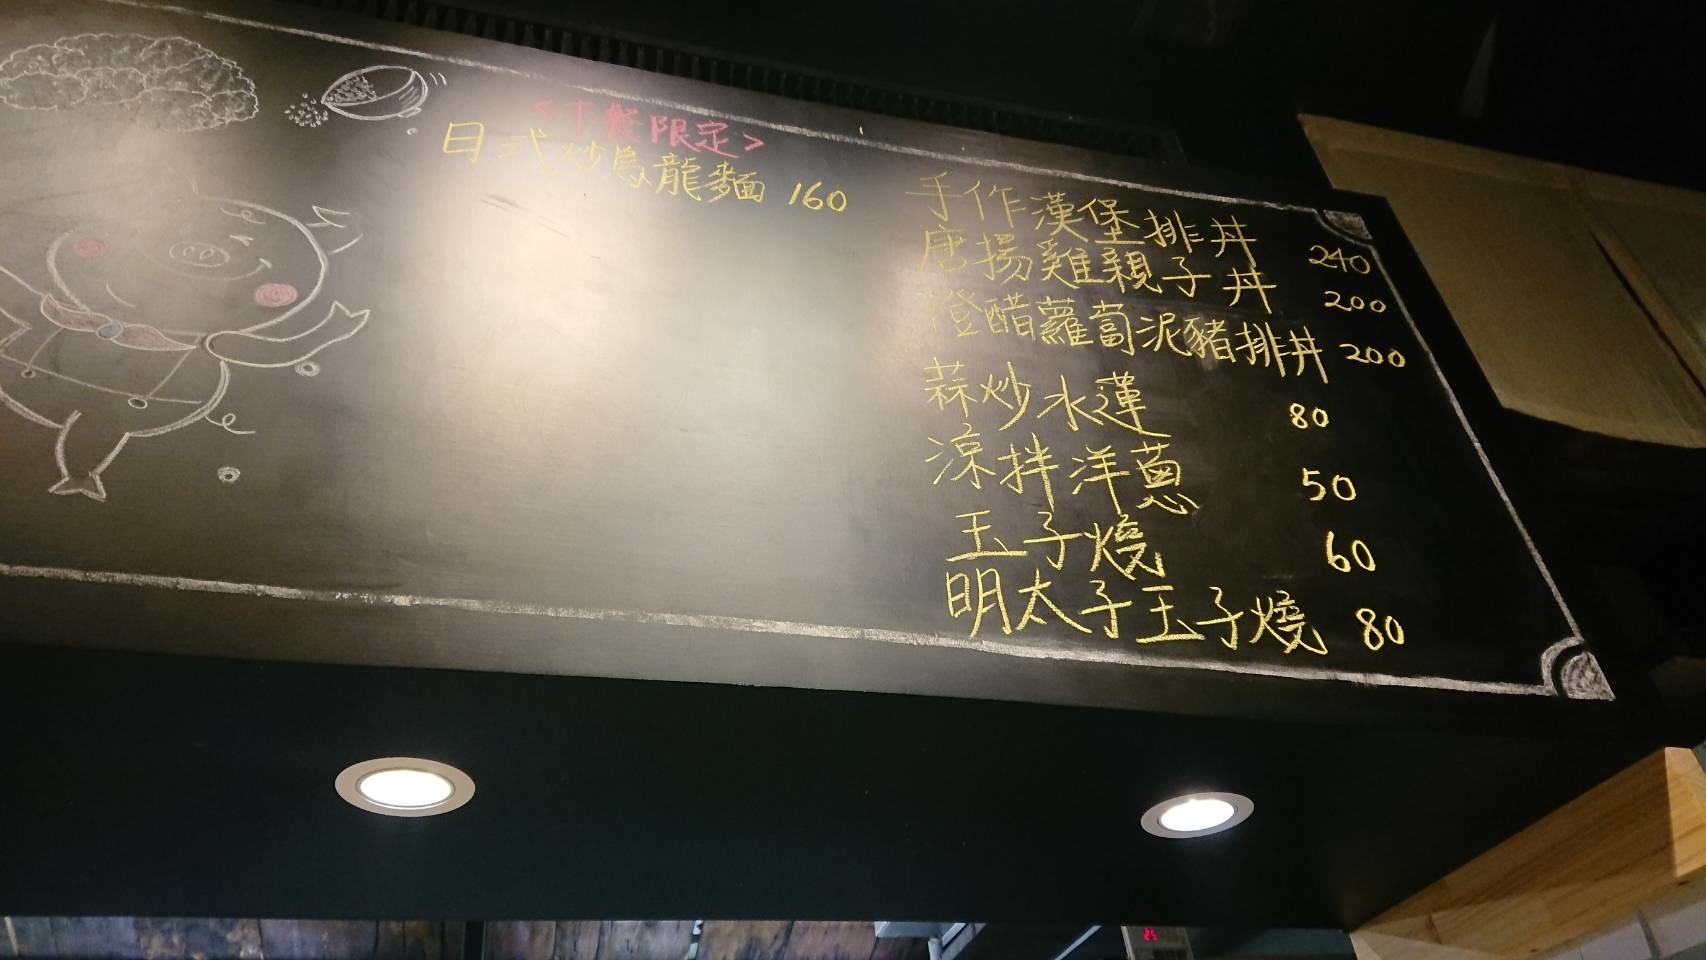 <午餐限定>
日式炒烏龍麵 160
手作漢堡排丼 240
唐揚雞親子丼 200
橙醋蘿蔔泥豬排丼 200
蒜炒水蓮 80
涼拌洋蔥 50
玉子燒 60
明太子玉子燒 80
25